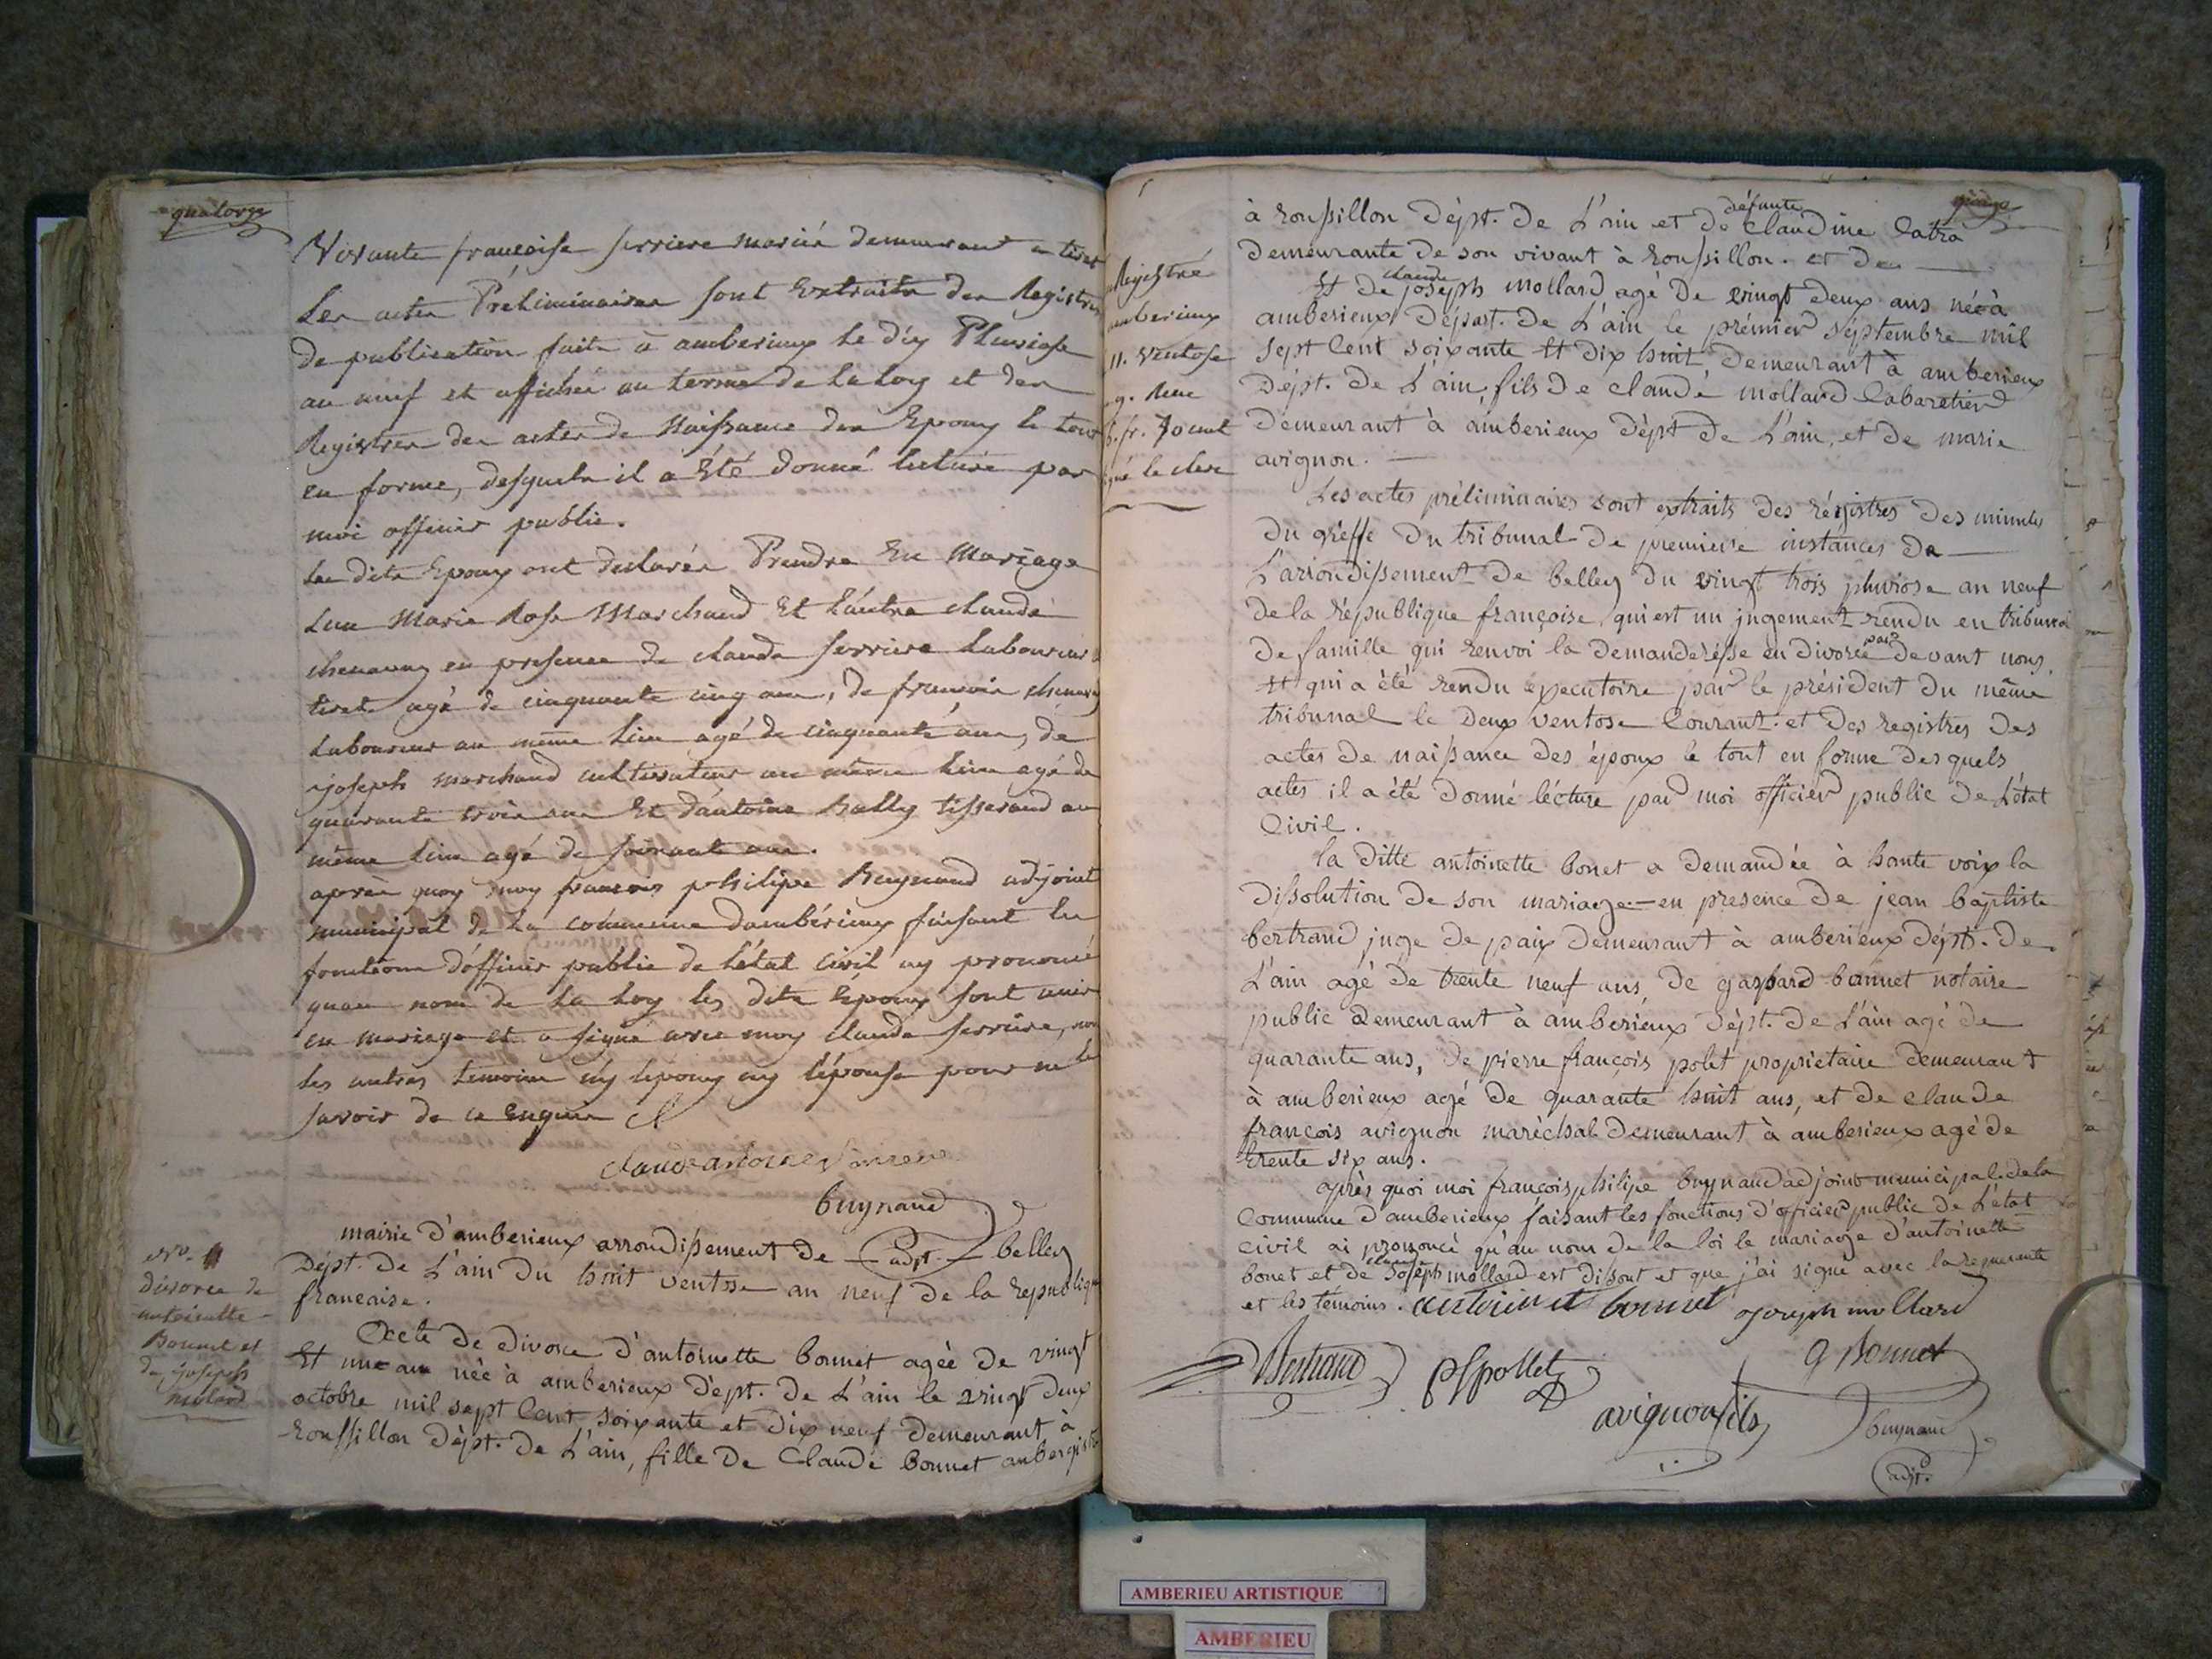 quatorze
Vivante françoise serriere mariés demeurant a tiret
Les actes Préliminaires sont Extraits des Registres
de publication faite à amberieux le dix Pluviose
an neuf et affichée au terme de la loy et des
Registres des actes de Naissance des Epoux le tout
en forme, desquels il a été donné lecture par
moi officier public.
les dits Epoux ont déclarés Prendre En Mariage
Lun Marie Rose Marchand Et L'autre claude
chenavay en presence de claude serriere Laboureur a
tiret agé de cinquante cinq ans, de francois chenavay
Laboureur au même lieu agé de cinquante ans, de
joseph marchand cultivateur au même lieu agé de
quarante trois ans Et d'antoine bally tisserand au
même lieu agé de soixante ans.
après quoy moy francois philipe buynand adjoint
municipal de la commune damberieux faisant les
fonctions d'officier public de l'état civil ay prononcé
quau nom de la loy les dits Epoux sont unis
en mariage et a signé avec moy claude serriere, non
les autres temoins ny lepoux ny l'épouse pour ne le
savoir de ce Enquis
claude antoine serriere
buynand
adjt.
mairie d'amberieux arrondissement de belley
Dépt. De L'ain Du huit ventose an neuf de la republique
francaise.
No.
divorce de
antoinette
Bonnet et
de joseph
molard
Acte de divorce d'antoinette bonnet agée De vingt
Et une ans née à amberieux Dépt. De L'ain le vingt deux
octobre mil sept Cent soixante et dix neuf demeurant à
Roussillon Dépt. De L'ain, fille De Claude bonnet aubergiste
quinze
Registré
amberieux
11. ventose
9. Reçu
fr. 70 cent
signé le clerc
à roussillon Dépt. De L'ain et de défunte Claudine Catra
Demeurante de son vivant à roussillon. et de
Et De claude joseph mollard agé De vingt deux ans né à
amberieux Départ. De L'ain le prémier séptembre mil
sept Cent soixante Et dix huit, Demeurant à amberieux
Dépt. De L'ain, fils De claude mollard Cabaretier
Demeurant à amberieux Dépt De L'ain, et de marie
avignon.
Les actes préliminaires sont extraits des régistres Des minutes
Du greffe Du tribunal De premiere instances De
L'arrondissement De belley du vingt trois pluviose an neuf
de la république françoise, qui est un jugement rendu en tribunal
De famille qui renvoi la demanderesse en divorce par devant nous,
Et qui a été rendu éxecutoire par le président du même
tribunal le Deux ventose Courant. et Des registres Des
actes De naissance des époux le tout en forme Desquels
actes il a été Donné lécture par moi officier public De L'état
Civil.
la ditte antoinette bonet a Demandée à haute voix la
Dissolution De son mariage en presence De jean baptiste
bertrand juge De paix Demeurant à amberieux Dépt. De
L'ain agé De trente neuf ans, De gaspard bonnet notaire
public Demeurant à amberieux Dépt. De L'ain agé De
quarante ans, De pierre françois polet propriétaire Demeurant
à amberieux agé De quarante huit ans, et de claude
françois avignon maréchal Demeurant à amberieux agé de
trente six ans.
après quoi moi françois philipe buynand adjoint municipal de la
Commune d'amberieux faisant les fonctions d'officier public de L'état
civil ai prononcé qu'au nom de la loi le mariage d'antoinette
bonet et de claude Joseph mollard est dissout et que j'ai signé avec la requerante
et les temoins. antoinett bonnet joseph mollard
Bertrand pf pollet g Bonnet
avignon fils
buynand
adjt.
AMBERIEU ARTISTIQUE
AMBERIEU